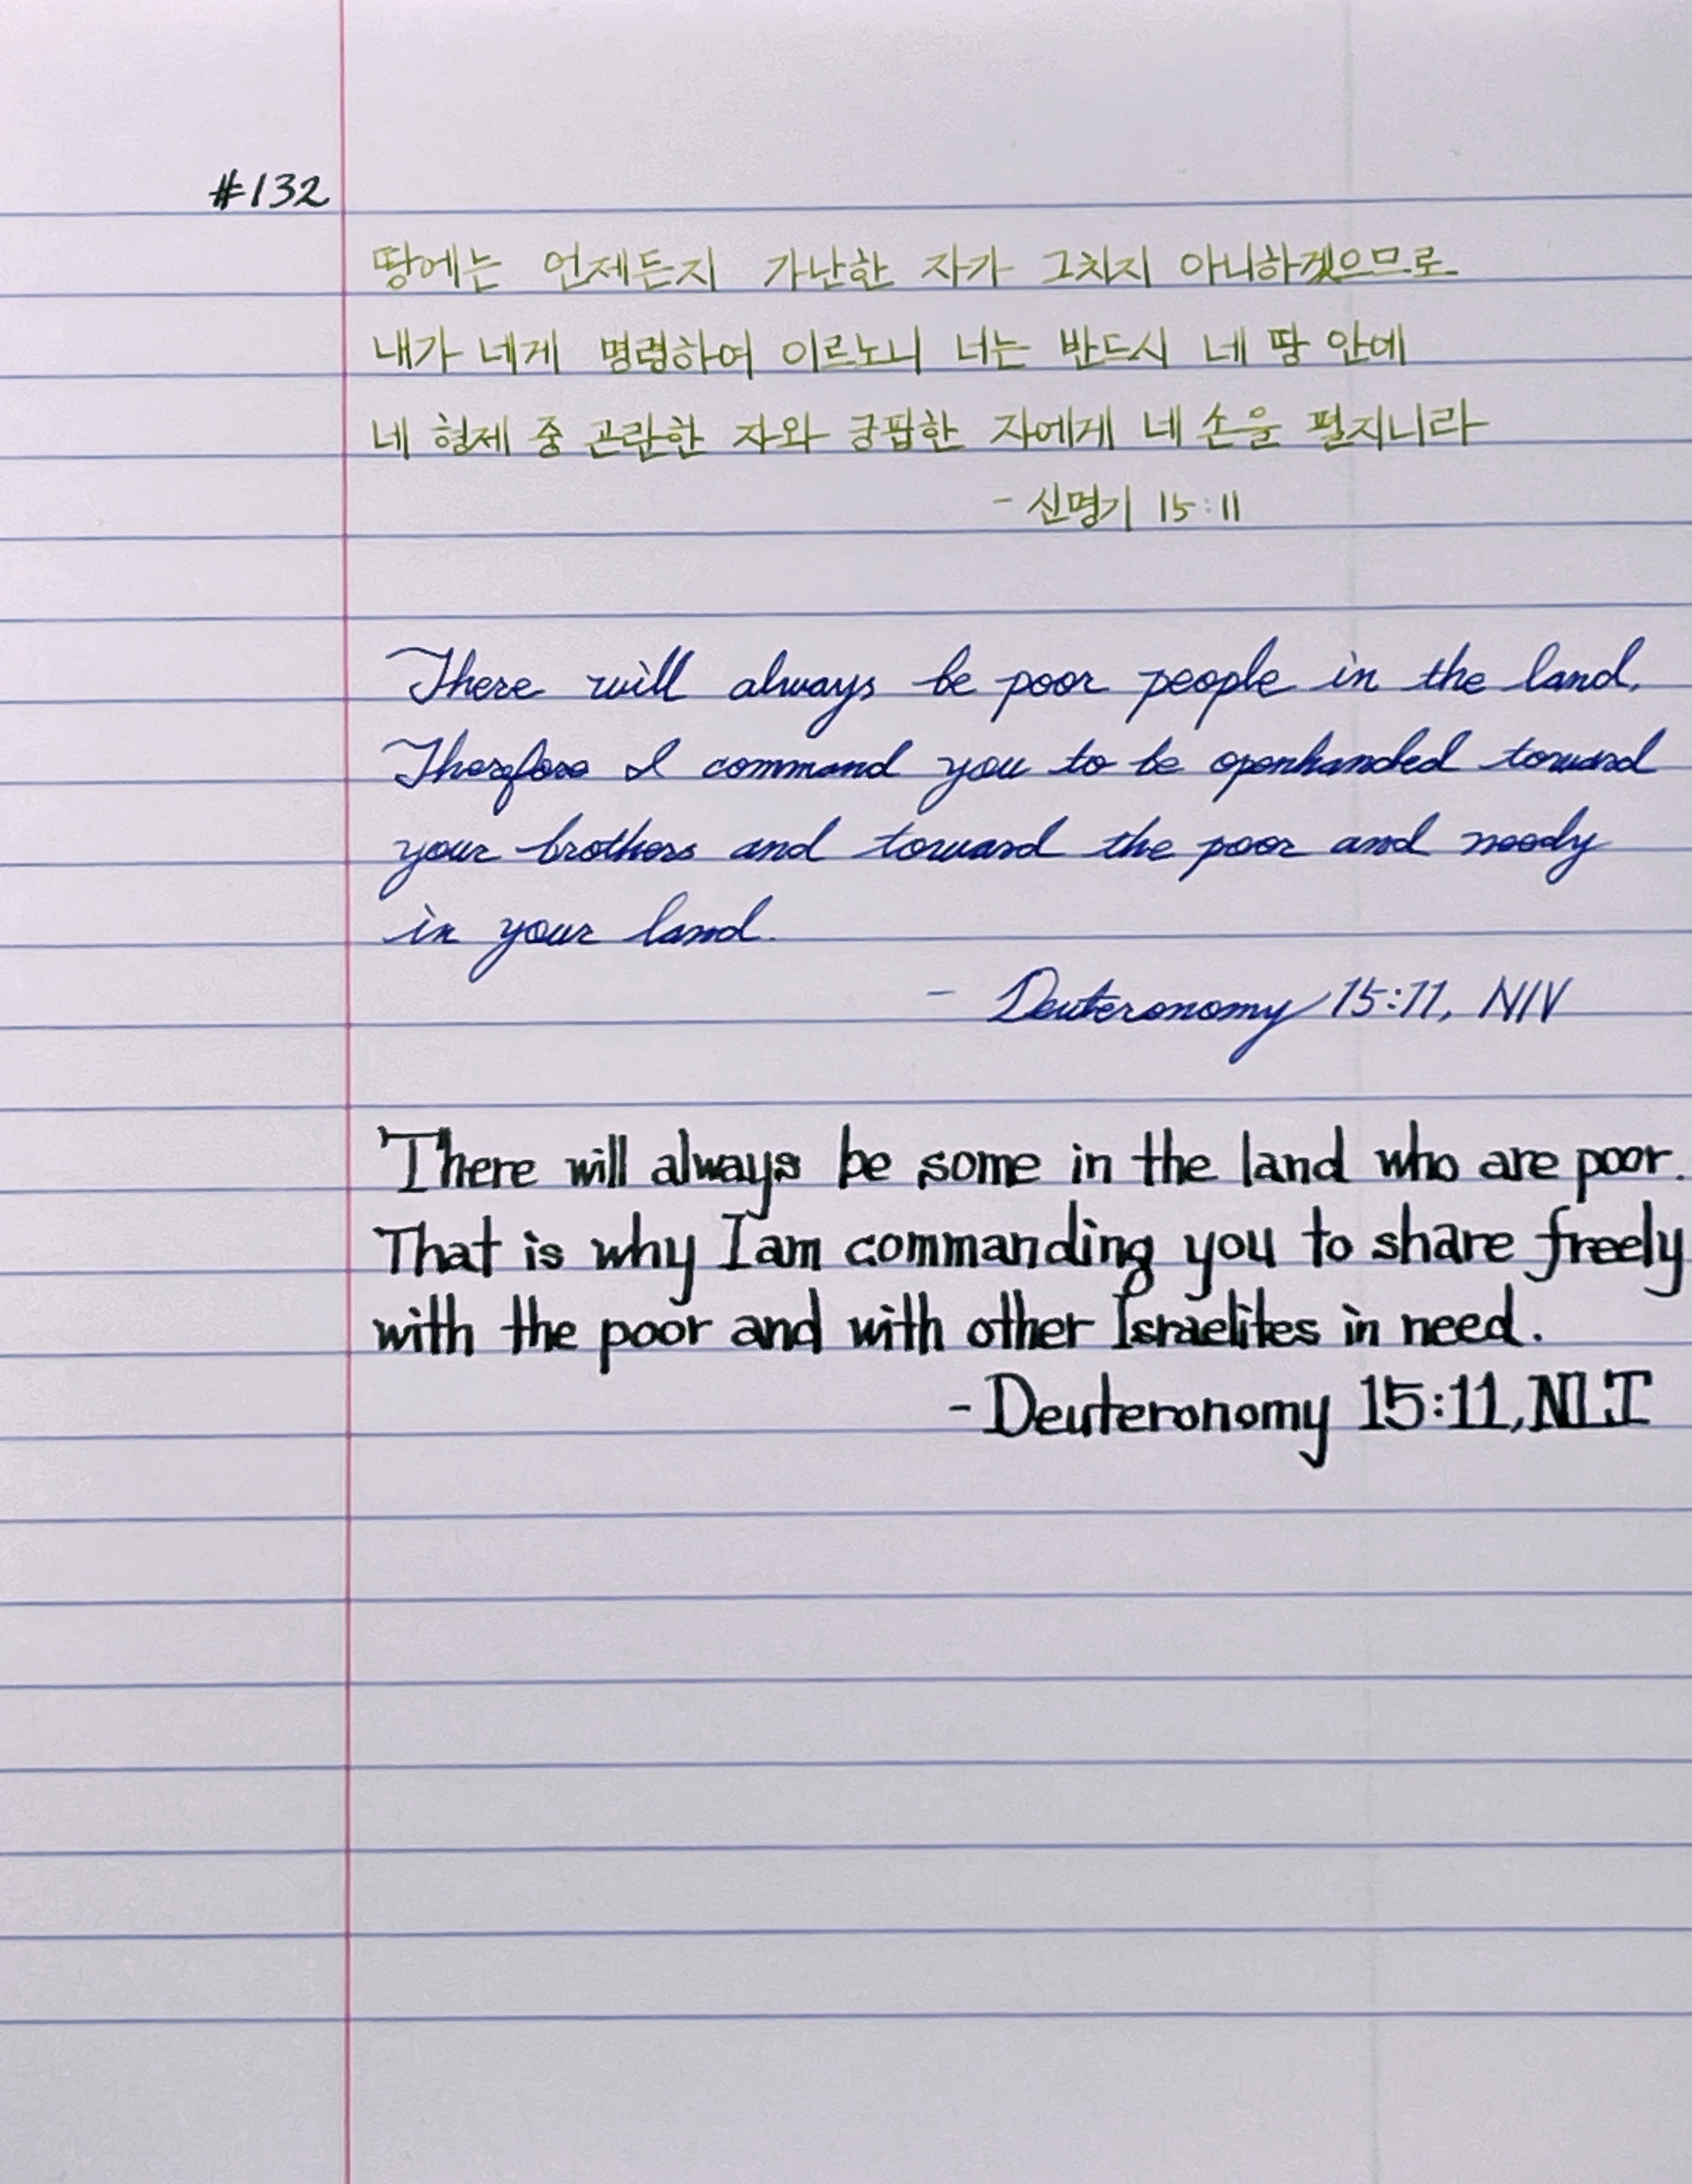 #132
땅에는 언제든지 가난한 자가 그치지 아니하겠으므로
내가 네게 명령하여 이르노니 너는 반드시 네 땅 안에
네 형제 중 곤란한 자와 궁핍한 자에게 네 손을 펼지니라
- 신명기 15:11
There will always be poor people in the land.
Therefore I command you to be openhanded toward
your brothers and toward the poor and needy
in your land.
- Deuteronomy 15:11, NIV
There will always be some in the land who are poor.
That is why I am commanding you to share freely
with the poor and with other Israelites in need.
- Deuteronomy 15:11, NLT